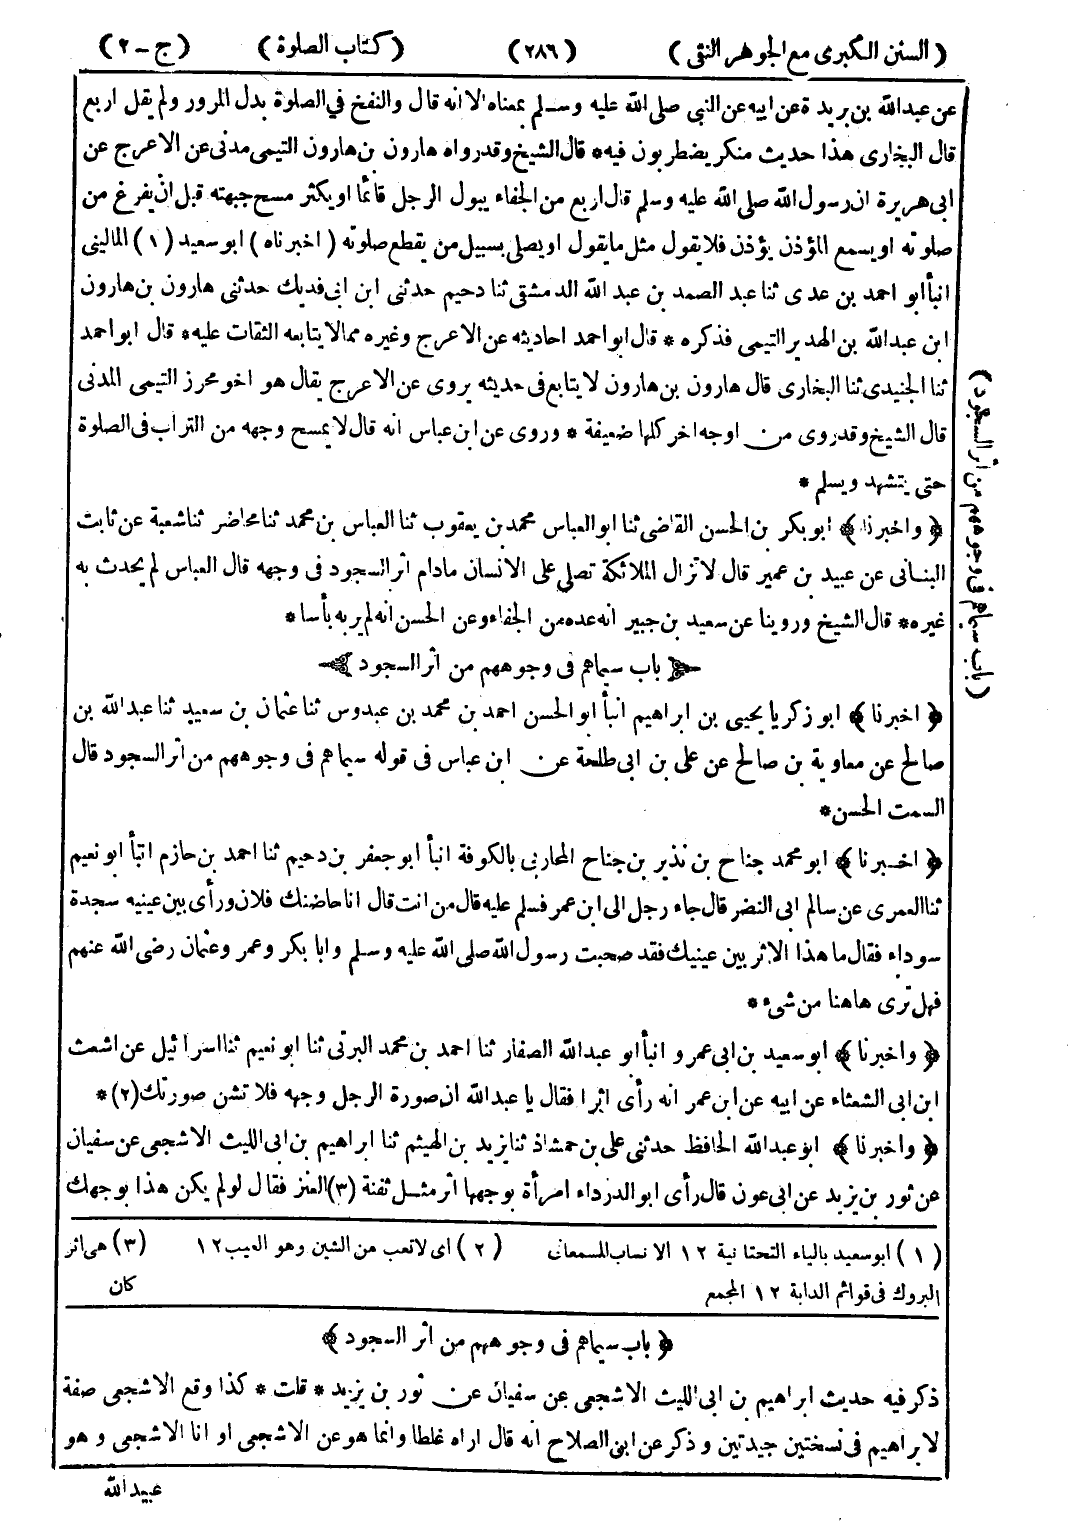 (السنن الكبرى مع الجوهر النقى) (٢٨٦) (كتاب الصلوة) (ج - ٢)
عن عبدالله بن بريدة عن ابيه عن النبى صلى الله عليه وسلم بمعناه الا انه قال والنفخ في الصلوة بدل المرور ولم يقل اربع
قال البخارى هذا حديث منكر يضطربون فيه * قال الشيخ وقد رواه هارون بن هارون التيمى مدنى عن الاعرج عن
ابى هريرة ان رسول الله صلى الله عليه وسلم قال اربع من الجفاء يبول الرجل قائما او يكثر مسح جبهته قبل ان يفرغ من
صلوته او يسمع المؤذن يؤذن فلا يقول مثل ما يقول او يصلى بسبيل من يقطع صلوته (اخبرناه) ابو سعيد (١) المالينى
انبأ ابو احمد بن عدى ثنا عبد الصمد بن عبد الله الدمشقى ثنا دحيم حدثنى ابن ابى فديك حدثنى هارون بن هارون
ابن عبدالله بن الهدير التيمى فذكره * قال ابو احمد احاديثه عن الاعرج وغيره مما لا يتابعه الثقات عليه * قال ابو احمد
ثنا الجنيدى ثنا البخارى قال هارون بن هارون لا يتابع فى حديثه يروى عن الاعرج يقال هو اخو محرز التيمى المدنى
قال الشيخ وقد روى من اوجه اخر كلها ضعيفة * وروى عن ابن عباس انه قال لا يمسح وجهه من التراب فى الصلوة
حتى يتشهد ويسلم *
﴿ واخبرنا ﴾ ابو بكر بن الحسن القاضى ثنا ابو العباس محمد بن يعقوب ثنا العباس بن محمد ثنا محاضر ثنا شعبة عن ثابت
البنانى عن عبيد بن عمير قال لا تزال الملائكة تصلى على الانسان مادام اثر السجود فى وجهه قال العباس لم يحدث به
غيره * قال الشيخ وروينا عن سعيد بن جبير انه عده من الجفاء وعن الحسن انه لم ير به بأسا *
﴿ باب سيماهم فى وجوههم من اثر السجود ﴾
﴿ اخبرنا ﴾ ابو زكريا يحيى بن ابراهيم انبأ ابو الحسن احمد بن محمد بن عبدوس ثنا عثمان بن سعيد ثنا عبدالله بن
صالح عن معاوية بن صالح عن على بن ابى طلحة عن ابن عباس فى قوله سيماهم فى وجوههم من اثر السجود قال
السمت الحسن *
﴿ اخبرنا ﴾ ابو محمد جناح بن نذير بن جناح المحاربى بالكوفة انبأ ابو جعفر بن دحيم ثنا احمد بن حازم انبأ ابو نعيم
ثنا العمرى عن سالم ابى النضر قال جاء رجل الى ابن عمر فسلم عليه قال من انت قال انا حاضنك فلان ورأى بين عينيه سجدة
سوداء فقال ما هذا الاثر بين عينيك فقد صحبت رسول الله صلى الله عليه وسلم وابا بكر وعمر وعثمان رضى الله عنهم
فهل ترى هاهنا من شىء *
﴿ واخبرنا ﴾ ابو سعيد بن ابى عمرو انبأ ابو عبدالله الصفار ثنا احمد بن محمد البرتى ثنا ابو نعيم ثنا اسرائيل عن اشعث
ابن ابى الشعثاء عن ابيه عن ابن عمر انه رأى اثرا فقال يا عبدالله ان صورة الرجل وجهه فلا تشن صورتك (٢) *
﴿ واخبرنا ﴾ ابو عبدالله الحافظ حدثنى على بن حمشاذ ثنا يزيد بن الهيثم ثنا ابراهيم بن ابى الليث الاشجعى عن سفيان
عن ثور بن يزيد عن ابى عون قال رأى ابو الدرداء امرأة بوجهها اثر مثل ثفنة (٣) العنز فقال لو لم يكن هذا بوجهك
(١) ابو سعيد بالياء التحتانية ١٢ الانساب للسمعانى (٢) اى لا تعب من الشين وهو العيب ١٢ (٣) هى اثر
البروك فى قوائم الدابة ١٢ المجمع كان
﴿ باب سيماهم فى وجوههم من اثر السجود ﴾
ذكر فيه حديث ابراهيم بن ابى الليث الاشجعى عن سفيان عن ثور بن يزيد * قلت * كذا وقع الاشجعى صفة
لابراهيم فى نسختين جيدتين وذكر عن ابن الصلاح انه قال اراه غلطا وانما هو عن الاشجعى او انا الاشجعى وهو
عبيد الله
(باب سيماهم فى وجوههم من اثر السجود)